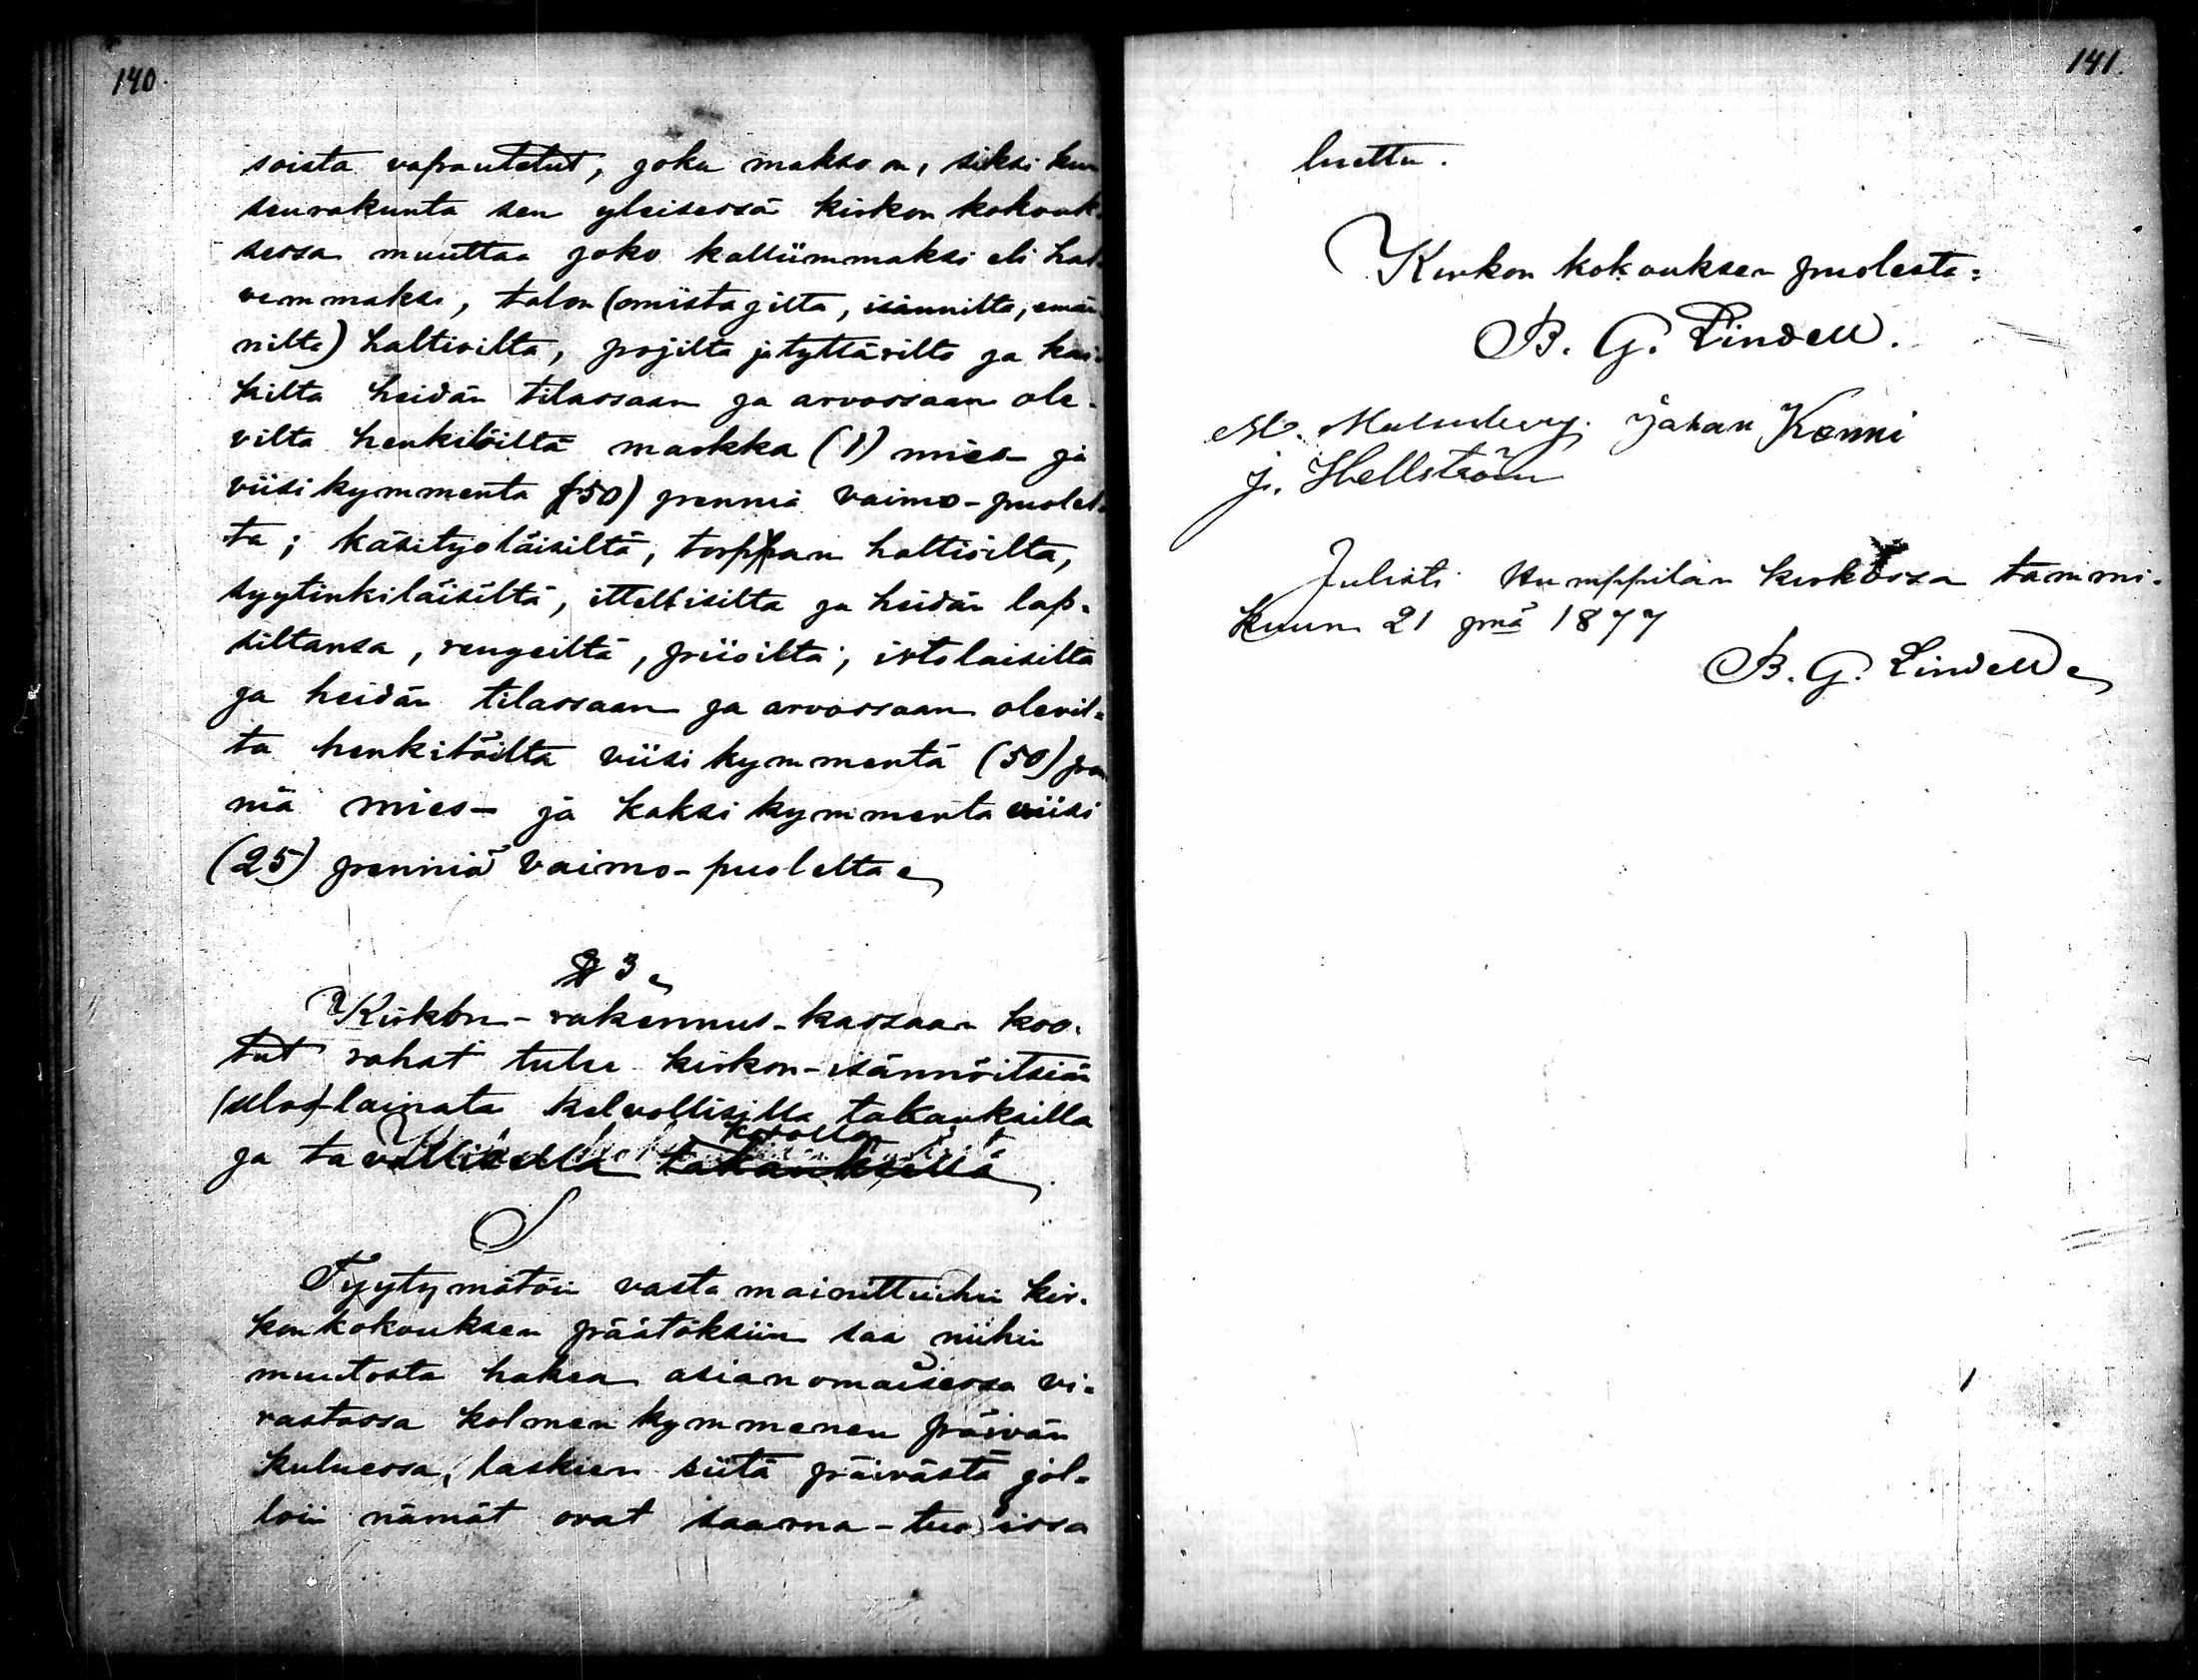 140.
soista vapautetut, joku makso on, siksi kun
seurakunta sen yleisessä kirkon kokouk-
sessa muuttaa joko kalliimmaksi eli hal-
vemmaksi, talon (omistajilta, isännilta, emän
nilta) haltioilta, pojilta ja tyttärilta ja kai-
kilta heidän tilassaan ja arvossaan ole-
vilta henkilöiltä markka (1) mies- ja
viisikymmentä (50) penniä vaimo-puolel-
ta; käsityöläisiltä, torppan haltioilta,
syytinkiläisiltä, ittellisilta ja heidän lap-
siltansa, rengeiltä, piioilta, irtolaisilta
ja heidän tilassaan ja arvossaan olevil-
ta henkilöilta viisikymmentä (50) pen
niä mies- ja kaksikymmentä viisi
(25) penniä vaimo-puolelta
§ 3
Kirkon-rakennus-kassaan koo-
tut rahat tulee kirkon-isännöitsiän
(ulos)-lainata kelvollisilla takauksilla
korolla
ja tavallisella takauksella
Tyytymätöin vasta mainittuihin kir-
konkokouksen päätöksiin saa niihin
muutosta hakea asianomaisessa vi-
rastossa kolmenkymmenen päivän
kuluessa, laskien siitä päivästä jol-
loin nämät ovat saarna-tuolissa
141.
luettu.
Kirkon kokouksen puolesta:
B. G. Lindell.
M. Malmberg. Johan Konni
J. Hellström
Julisti Humppilan kirkossa tammi-
kuun 21 pnä 1877
B. G. Lindell